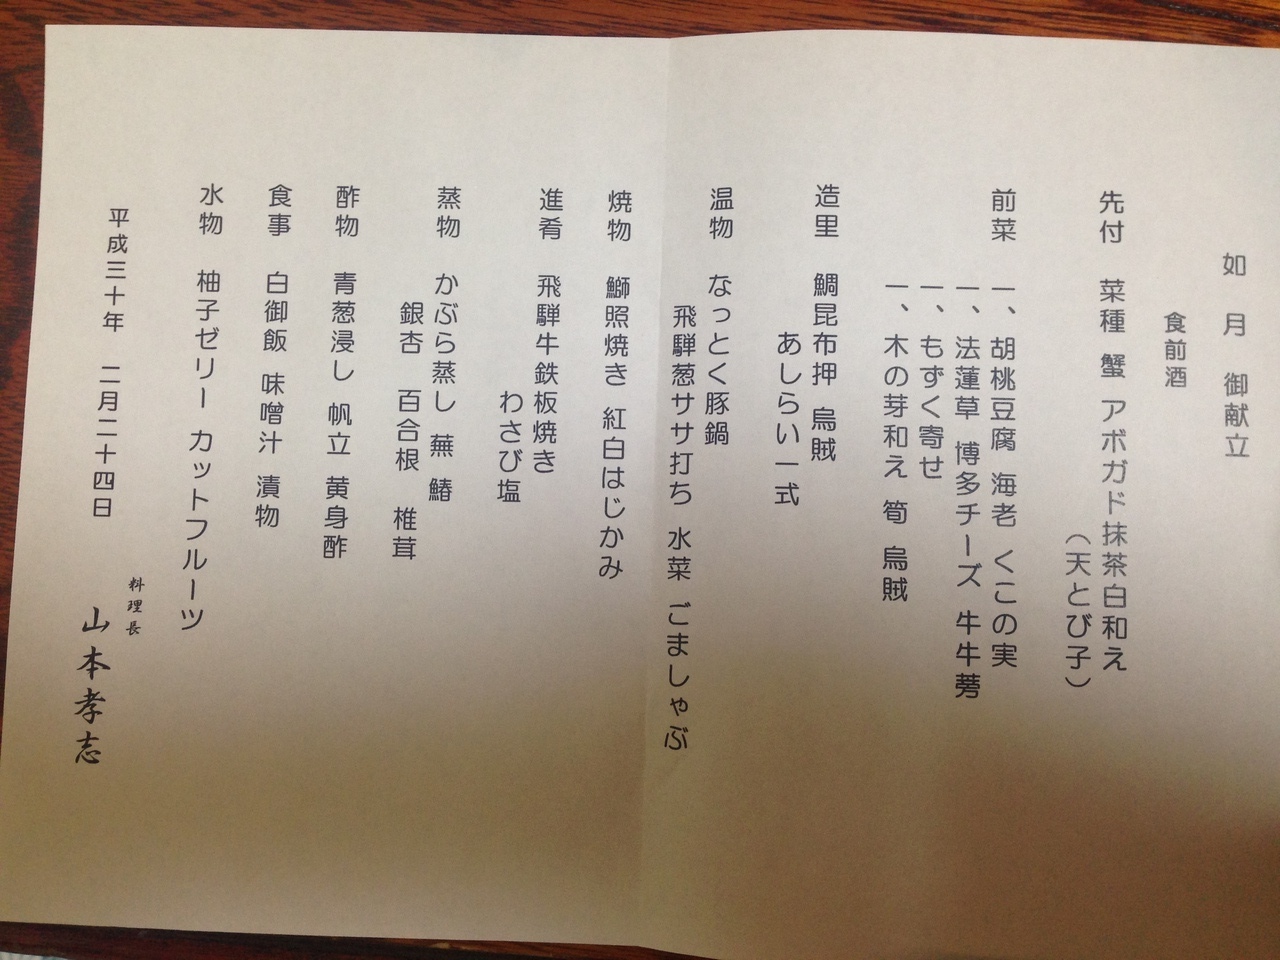 如月 御献立
食前酒
先付 菜種 蟹 アボガド抹茶白和え
（天とび子）
前菜 一、胡桃豆腐 海老 くこの実
一、法蓮草 博多チーズ 牛牛蒡
一、もずく寄せ
一、木の芽和え 筍 烏賊
造里 鯛昆布押 烏賊
あしらい一式
温物 なっとく豚鍋
飛騨葱ササ打ち 水菜 ごましゃぶ
焼物 鰤照焼き 紅白はじかみ
進肴 飛騨牛鉄板焼き
わさび塩
蒸物 かぶら蒸し 蕪 鰆
銀杏 百合根 椎茸
酢物 青葱浸し 帆立 黄身酢
食事 白御飯 味噌汁 漬物
水物 柚子ゼリー カットフルーツ
平成三十年 二月二十四日
料理長
山本孝志